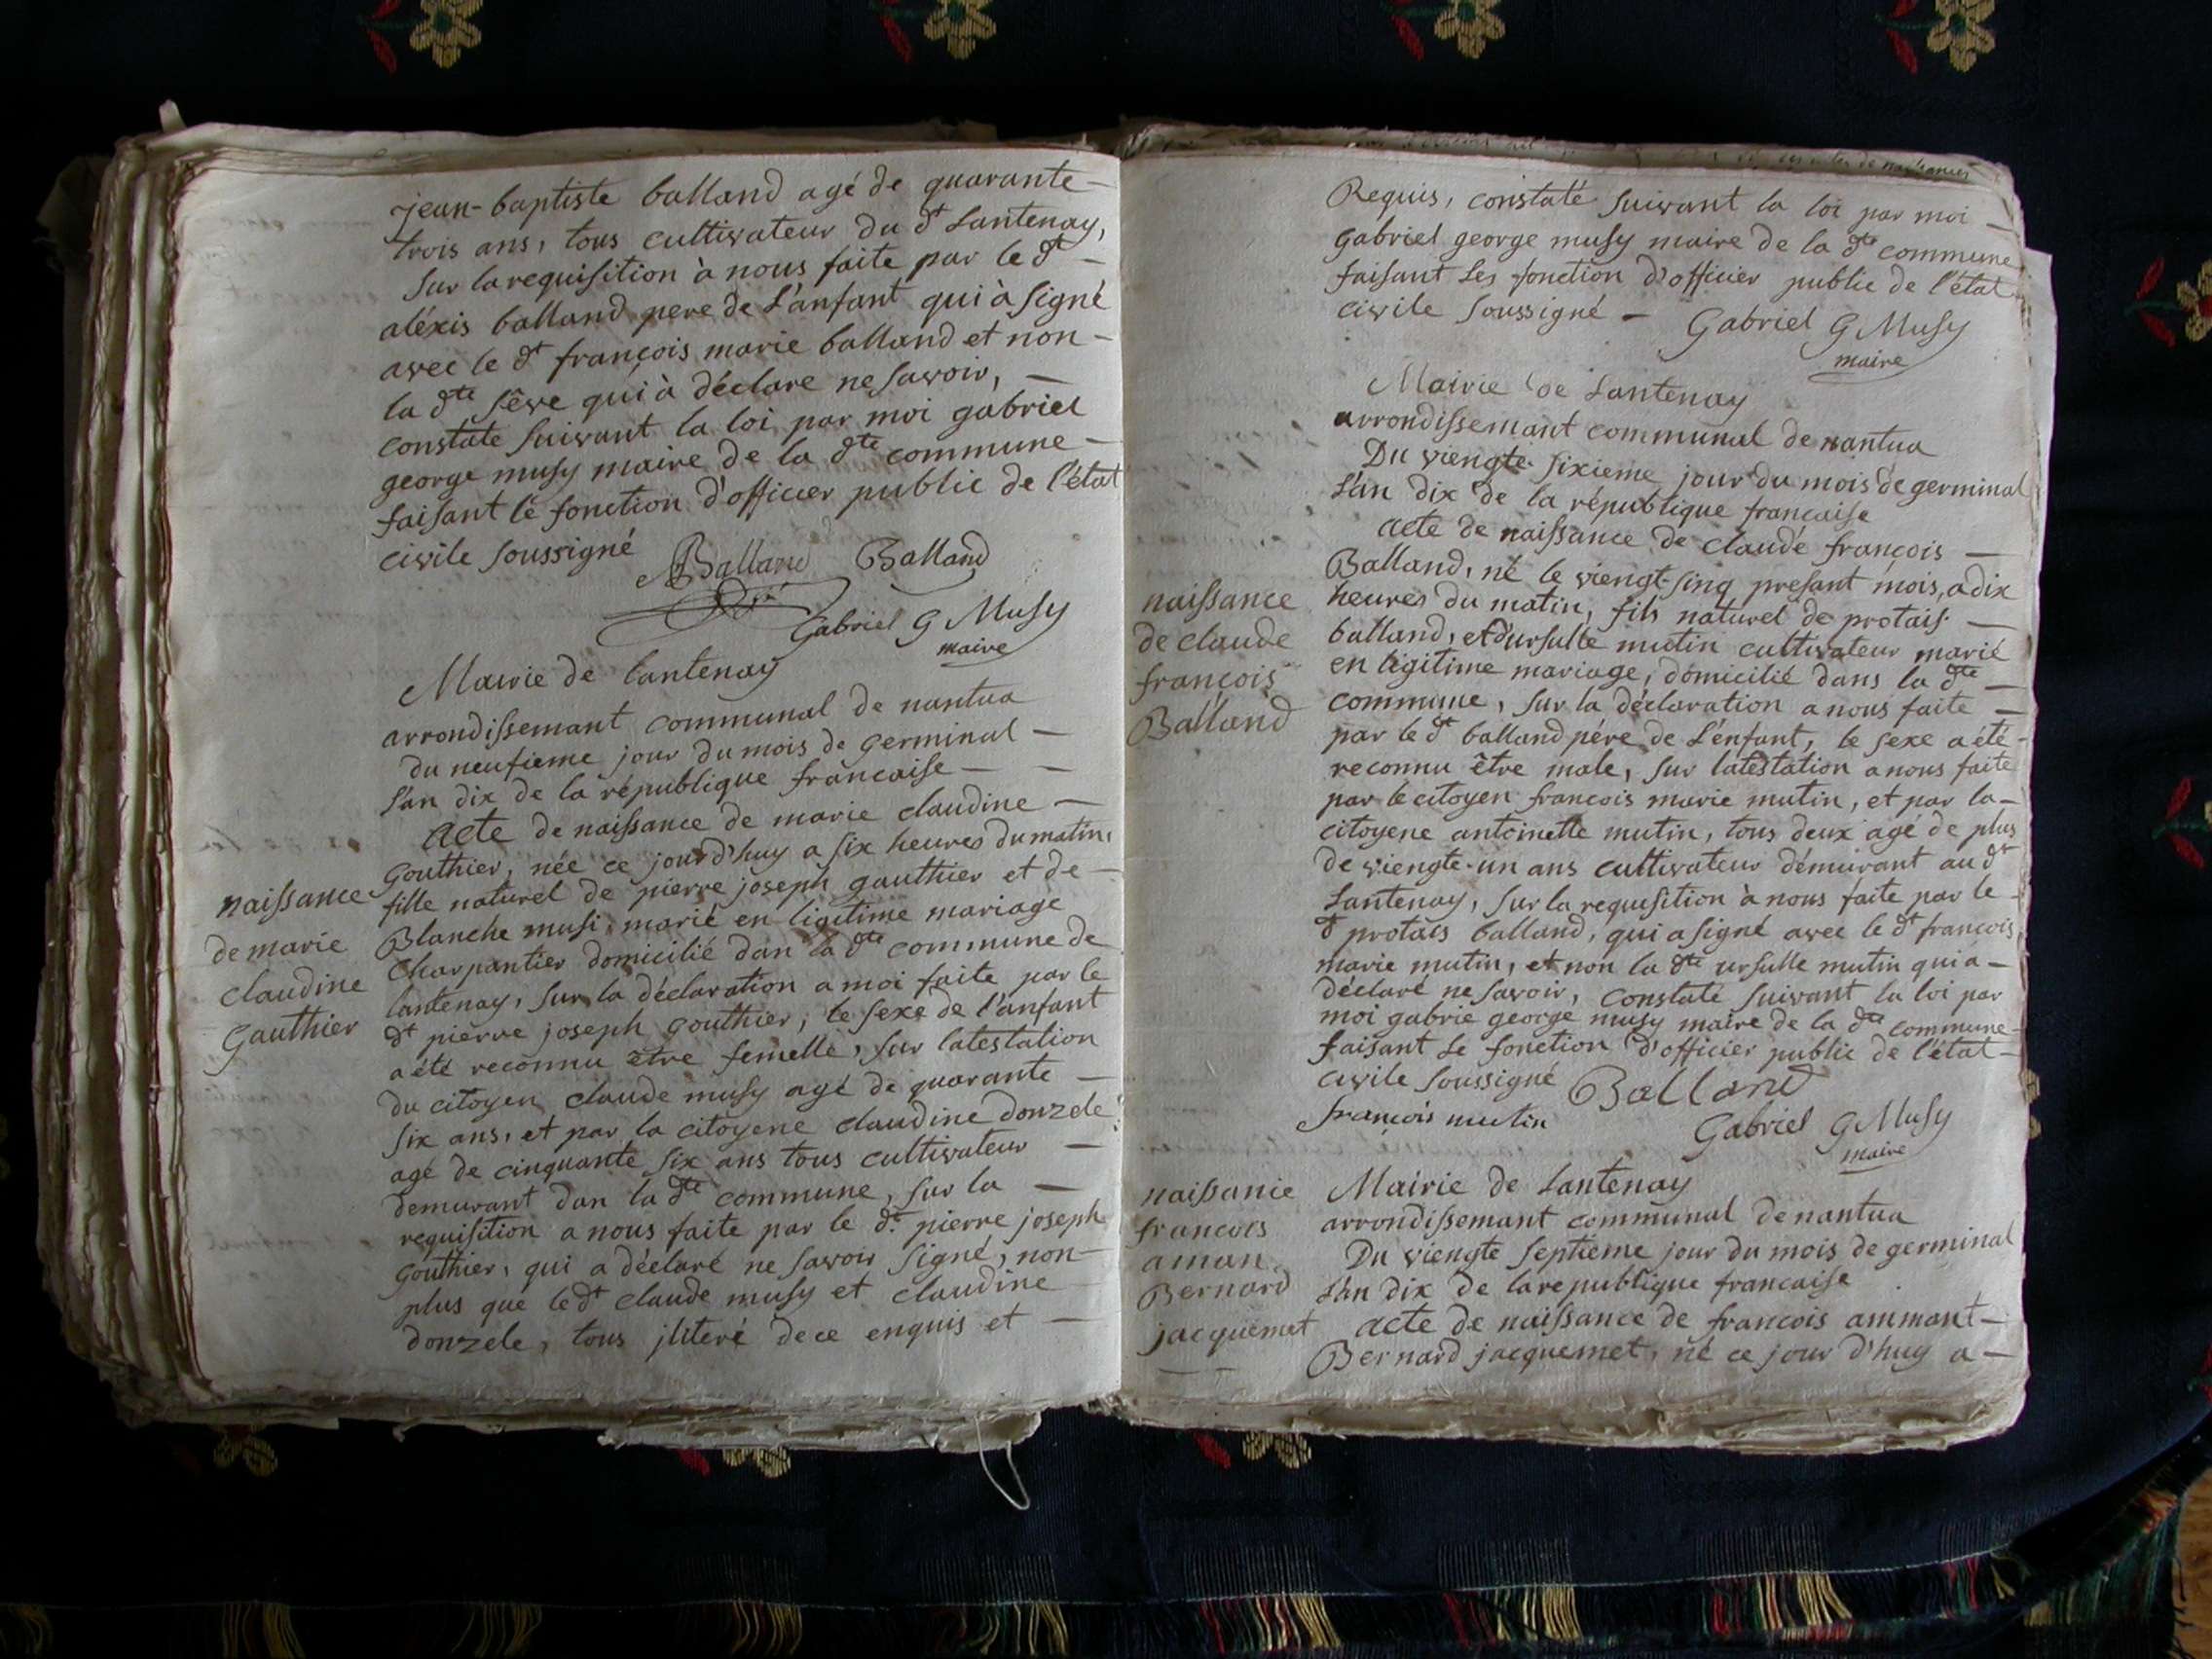 jean-baptiste balland agé de quarante-
trois ans, tous cultivateur du dt Lantenay,
sur la requisition à nous faite par le dt -
aléxis balland pere de L'anfant qui à signé
avec le dt françois marie balland et non -
la dte séve qui à déclare ne savoir, -
constate suivant la loi par moi gabriel
george musy maire de la dte commune -
faisant le fonction d'officier public de l'état
civile soussigné Balland Balland
Gabriel G Musy
maire
Mairie de Lantenay
arrondissemant communal de nantua
du neufieme jour du mois de germinal -
l'an dix de la république francaise - -
acte de naissance de marie claudine -
gouthier, née ce jourd'huy a six heures du matin,
naissance
de marie
claudine
Gauthier
fille naturel de pierre joseph gauthier et de -
Blanche musi, marié en ligitime mariage
Charpantier domicilié dan la dte commune de
lantenay, sur la déclaration a moi faite par le
dt pierre joseph gouthier, le sexe de l'anfant
a été reconnu être femelle, sur latestation
du citoyen claude musy agé de quarante -
six ans, et par la citoyene claudine donzele
agé de cinquante six ans tous cultivateur -
demurant dan la dte commune, sur la -
requisition a nous faite par le dt pierre joseph
gouthier, qui a déclaré ne savoir signé, non-
plus que le dt claude musy et claudine
donzele, tous jliteré de ce enquis et -
Requis, constaté suivant la loi par moi -
gabriel george musy maire de la dte commune
faisant les fonction d'officier public de l'état
civile soussigné - Gabriel G Musy
maire
Mairie de Lantenay
arrondissemant communal de nantua
Du viengte sixieme jour du mois de germinal
l'an dix de la république francaise
acte de naissance de claude françois -
Balland, né le viengt sinq presant mois, a dix
naissance
de claude
françois
Balland
heures du matin, fils naturel de protais -
balland, et d'ursulle mutin cultivateur marié
en ligitime mariage, domicilié dans la dte -
commune, sur la déclaration a nous faite -
par le dt balland pére de L'énfant, le sexe a été -
reconnu être male, sur latestation a nous faite
par le citoyen francois marie mutin, et par la -
citoyene antoinette mutin, tous deux agé de plus
de viengte-un ans cultivateur démurant au dt
Lantenay, sur la requisition à nous faite par le -
dt protais balland, qui a signé avec le dt francois
marie mutin, et non la dte ursulle mutin qui a -
déclaré ne savoir, constaté suivant la loi par
moi gabrie george musy maire de la dte commune -
faisant le fonction d'officier public de l'état -
civile soussigné Balland
françois mutin
Gabriel G Musy
maire
naissanie
francois
aman
Bernard
jacquemet
Mairie de Lantenay
arrondissemant communal de nantua
Du viengte septieme jour du mois de germinal
l'an dix de la republique francaise
acte de naissance de francois ammant -
Bernard jacquemet, né ce jour d'huy a -